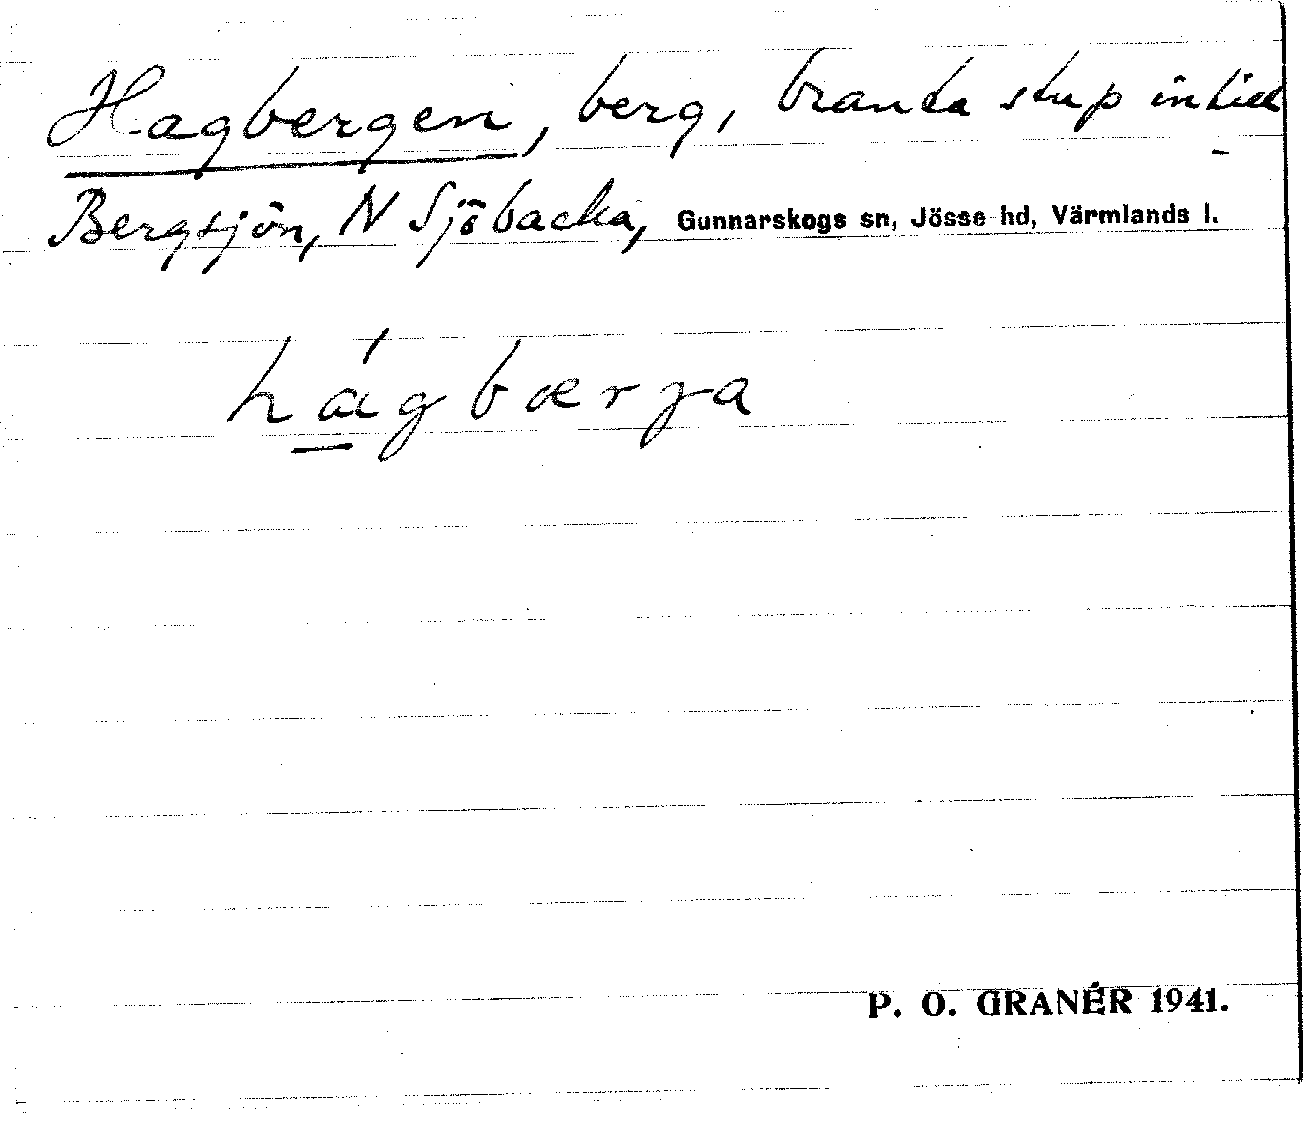 Hagbergen, berg, branta stup intill
Bergsjön, N Sjöbacka, Gunnarskogs sn, Jösse hd, Värmlands l.
hágbærja
P. O. GRANÉR 1941.